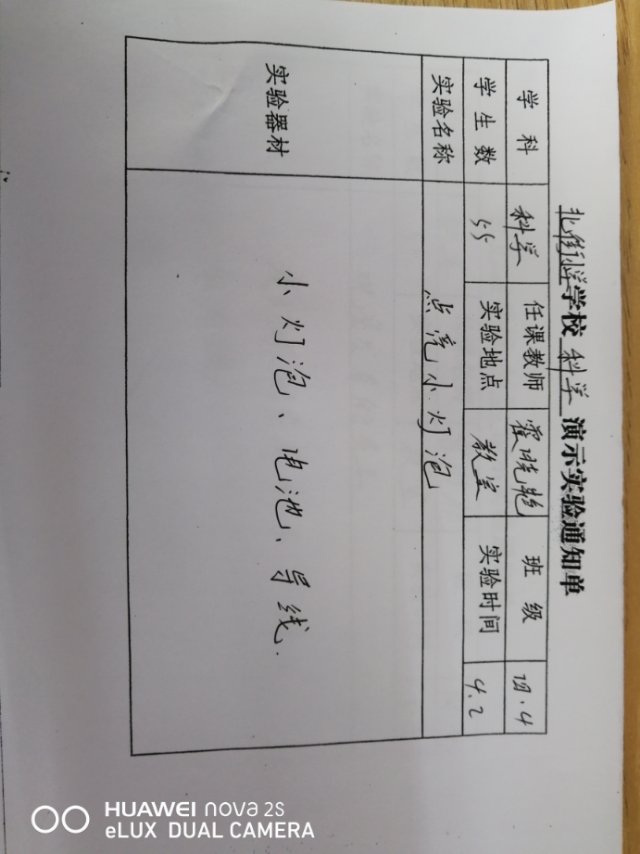 学校 科学 演示实验通知单
学科 科学 任课教师 霍晓艳 班级 四.4
学生数 55 实验地点 教室 实验时间 4.2
实验名称 点亮小灯泡
实验器材 小灯泡、电池、导线.
HUAWEI nova 2s
eLUX DUAL CAMERA